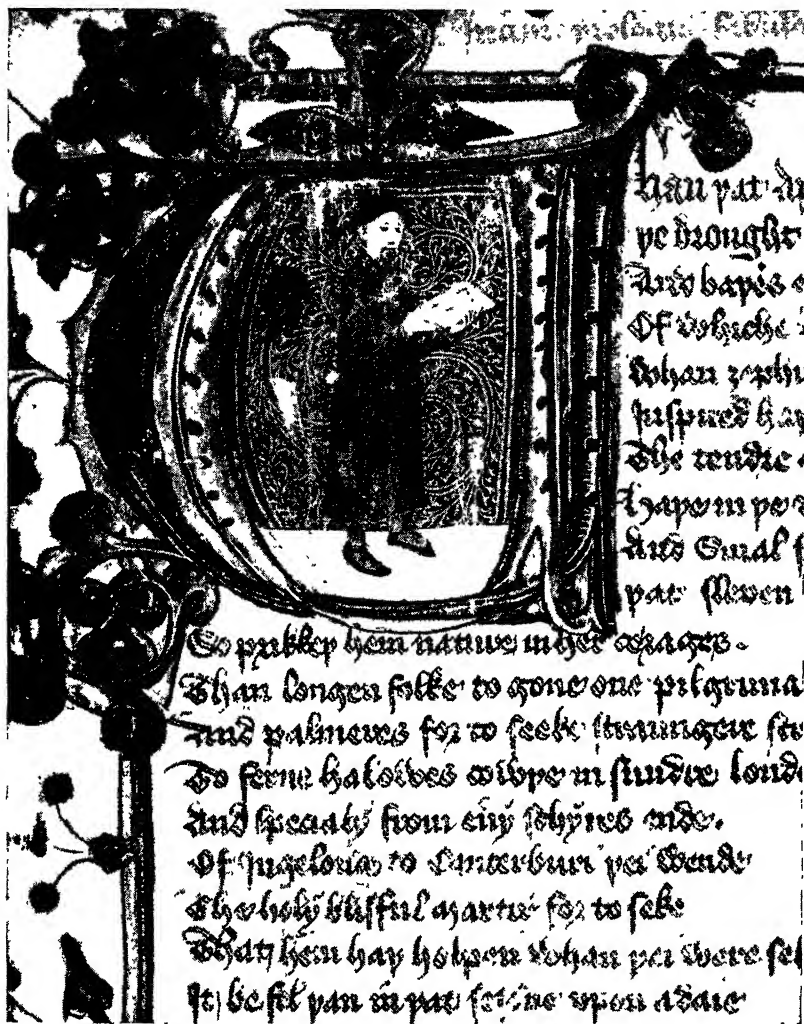 Incipit prologus
Whan þat Ap
þe drought
And baþes
Of whiche
Whan zephi
Inspired haþ
The tendre
Haþe in þe
And Smal f
þat slepen
So prikkeþ hem nature in her corages.
Than longen folke to gone one pilgrima
And palmeres for to seeke straungere str
To ferne halowes cowþe in sundre londe
And specialy from euy schyres ende.
Of Ingelond to Canterburi þei wende
The holy blisful martir for to seke
That hem haþ holpen whan þei were se
It be fel þan in þat sesone upon a daie